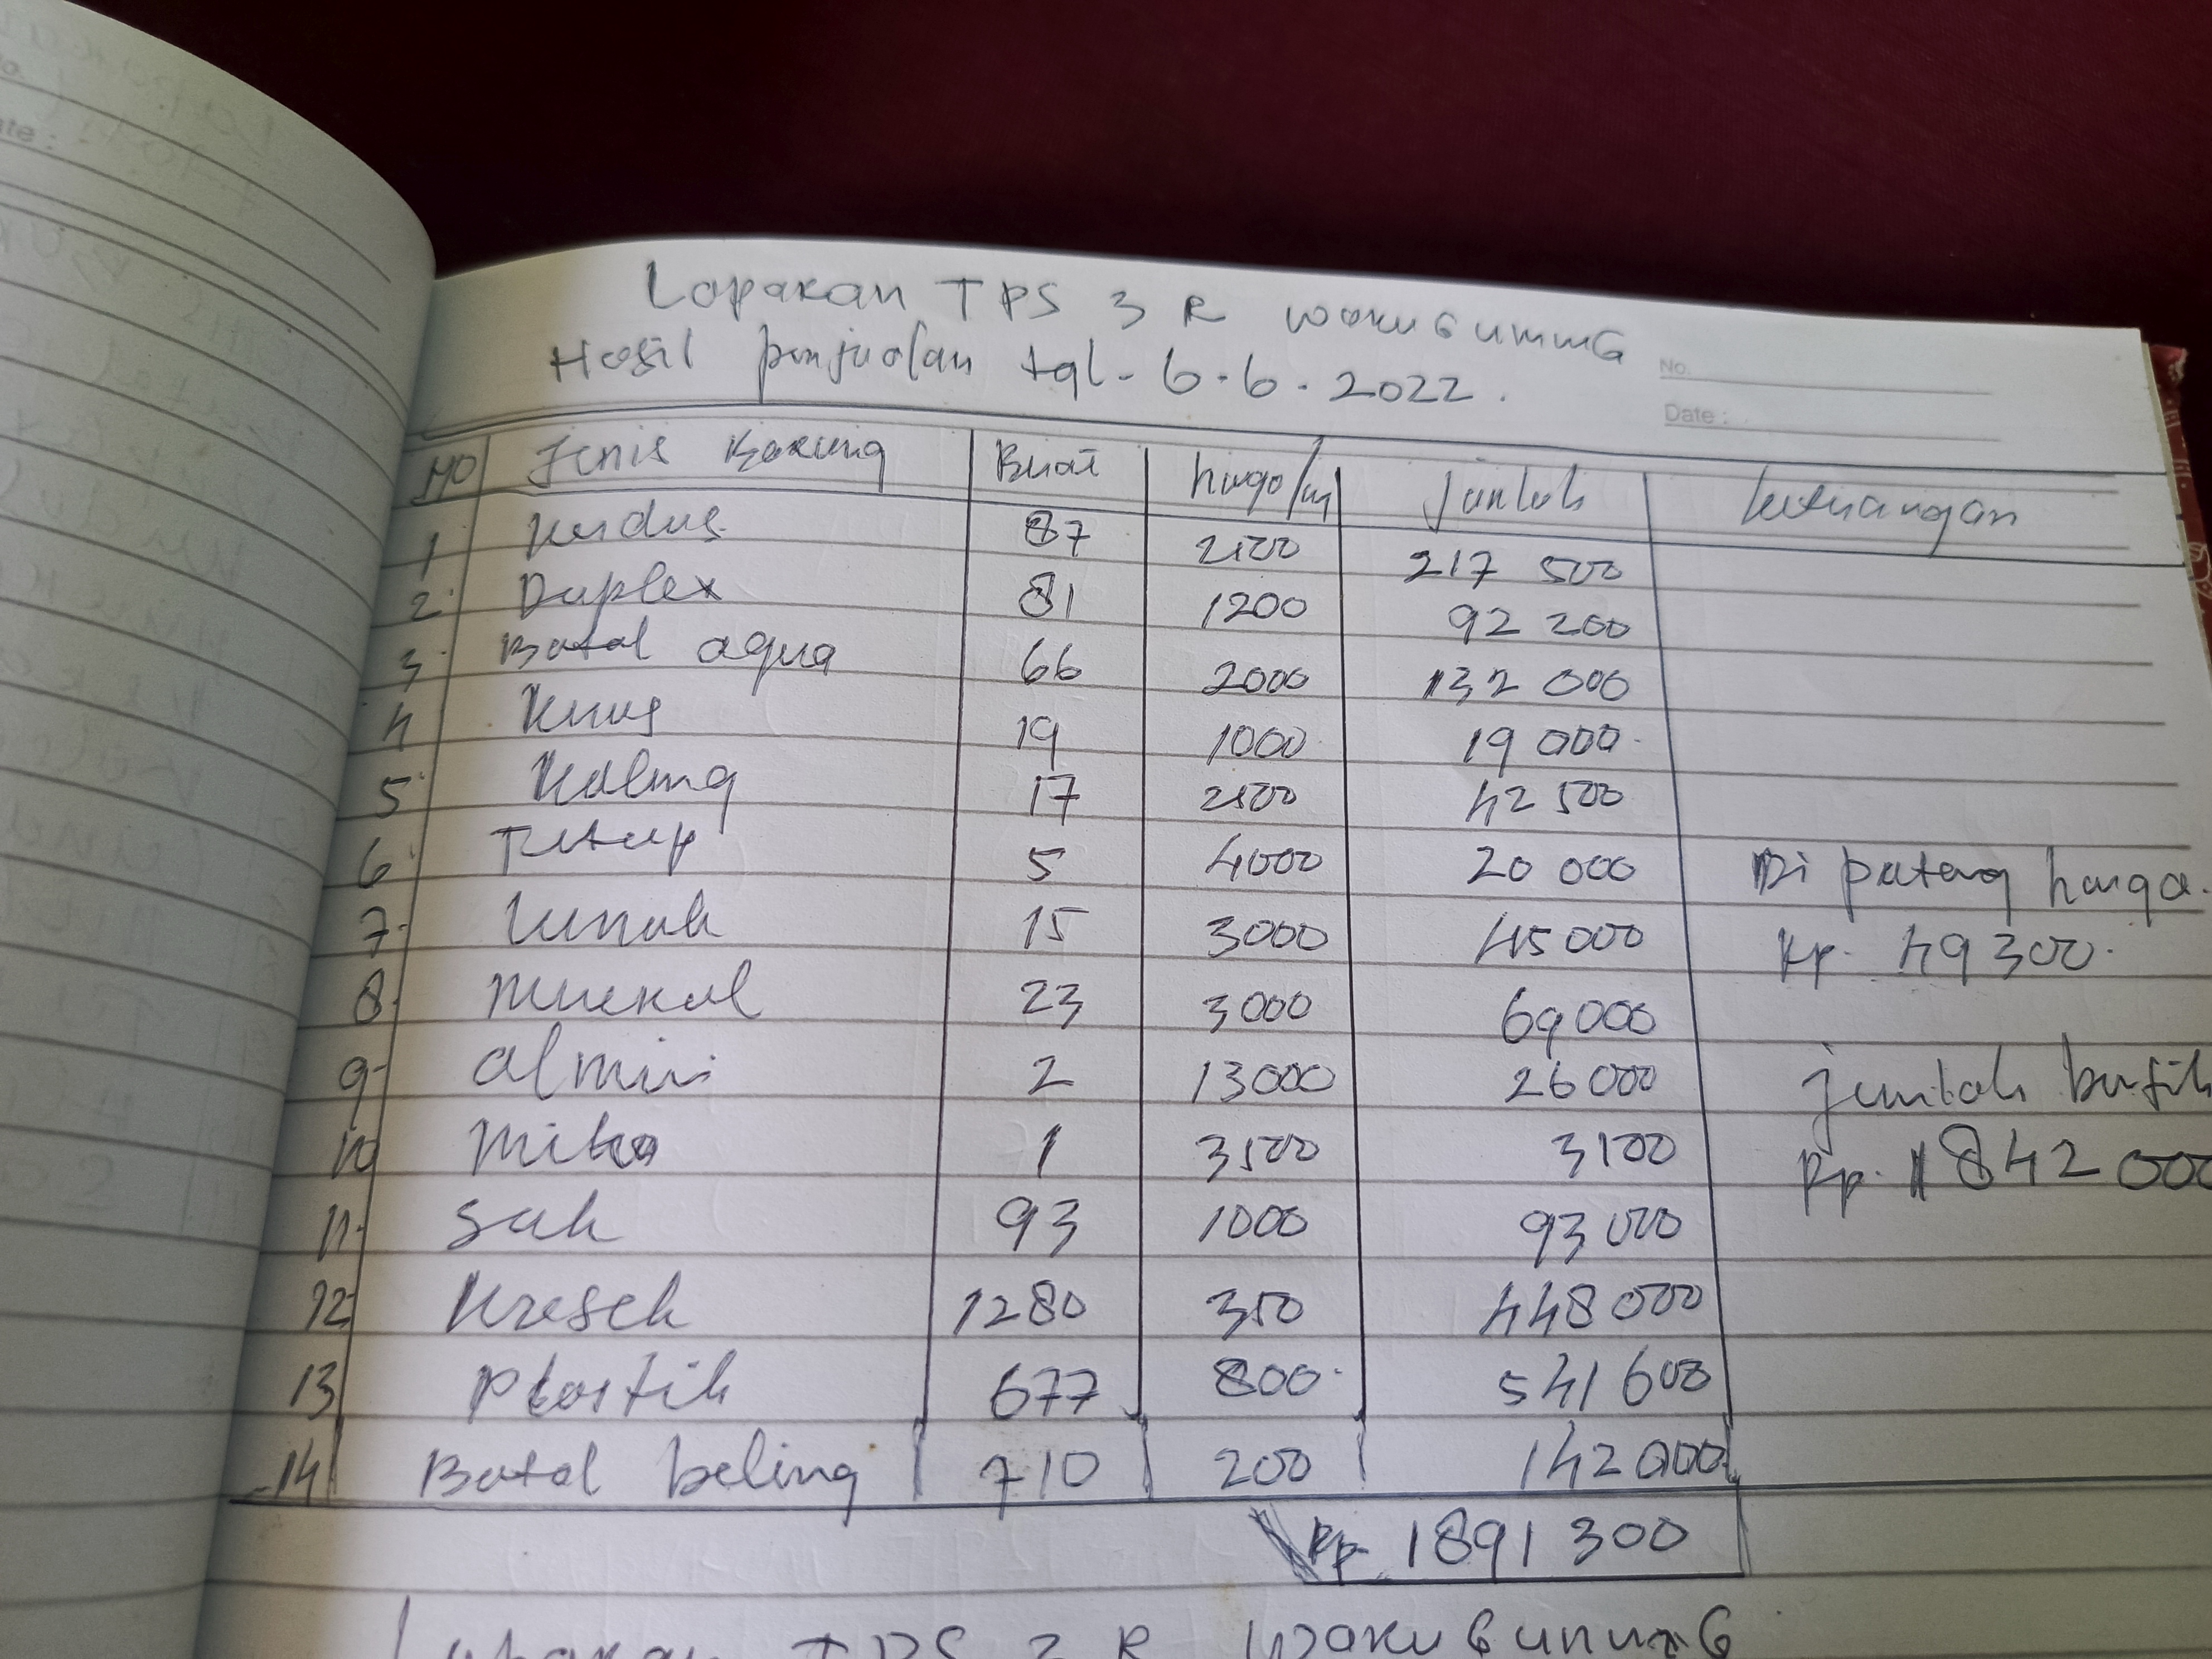 Laporan TPS 3 R WARUGUNUNG
Hasil penjualan tgl - 6 . 6 . 2022 .
No.
Date :
NO Jenis Barang Berat harga/kg jumlah keterangan
1 Kerdus 87 2500 217 500
2 Duplex 81 1200 92 200
3 Botol aqua 66 2000 132 000
4 Keras 19 1000 19 000
5 Kaleng 17 2500 42 500
6 Tutup 5 4000 20 000 Di potong harga
7 Lunak 15 3000 45 000 Rp. 49 300
8 Mineral 23 3000 69 000
9 almini 2 13000 26 000 jumlah bersih
10 Mika 1 3500 3500 Rp. 1842 000
11 Sak 93 1000 93 000
12 Kresek 1280 350 448 000
13 Plastik 677 800 541 600
14 Botol beling 710 200 142 000
Rp 1891 300
Laporan TPS 3 R WARUGUNUNG